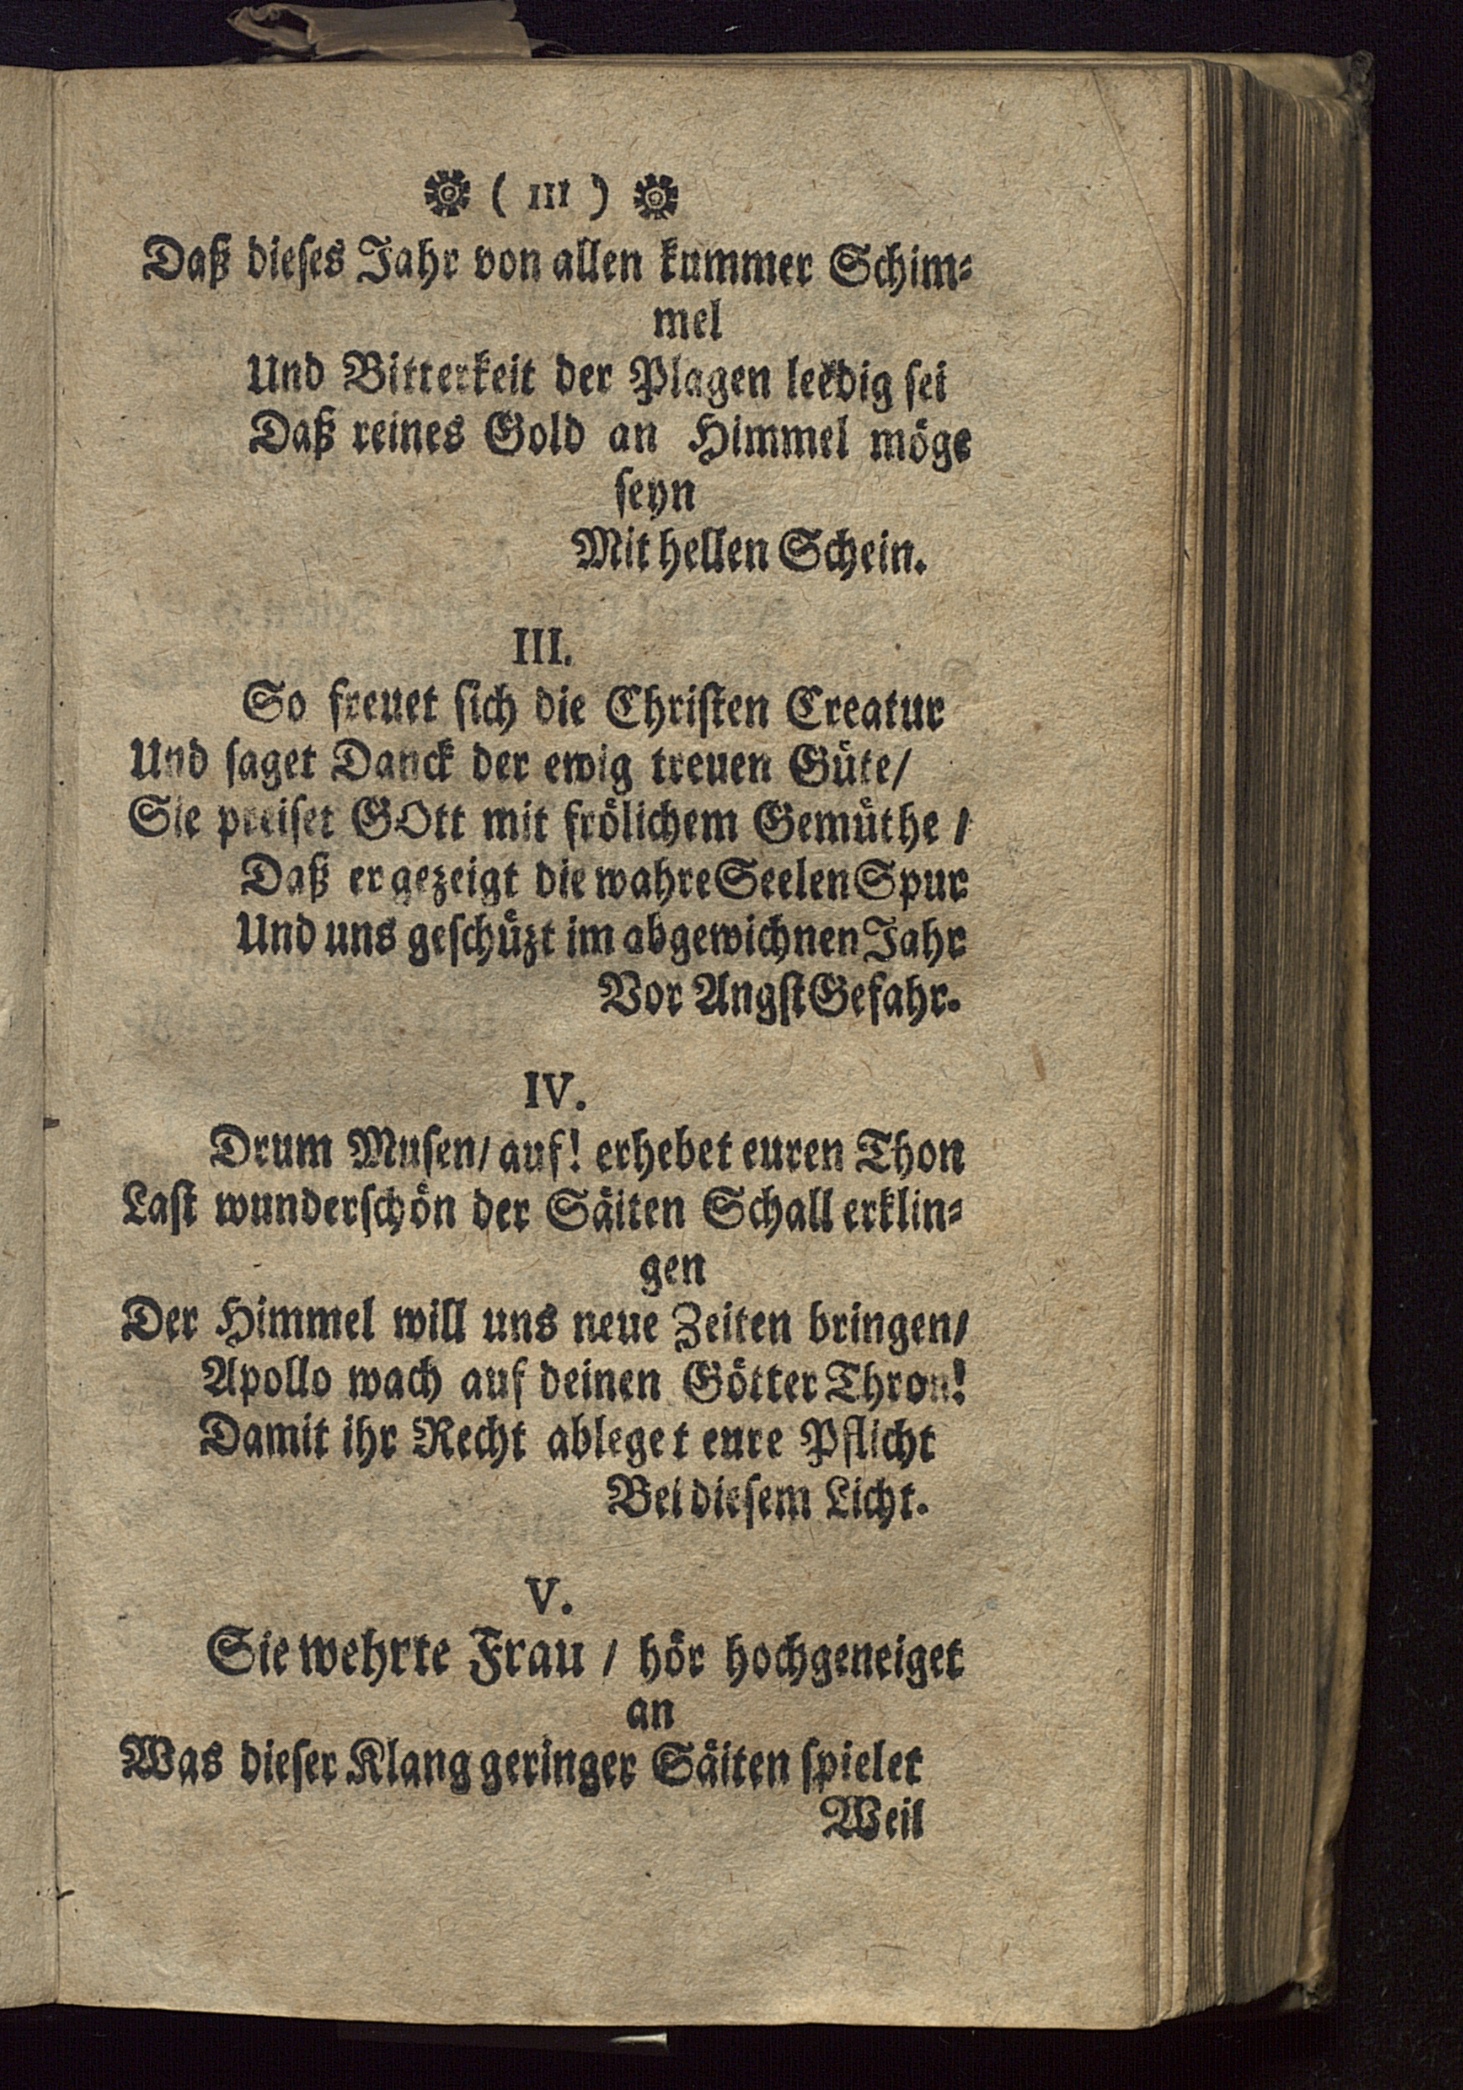 ( 111 )
Daß dieses Jahr von allen kummer Schim⸗
mel
Und Bitterkeit der Plagen leedig sei
Daß reines Gold an Himmel möge
seyn
Mit hellen Schein.
III.
So freuet sich die Christen Creatur
Und saget Danck der ewig treuen Güte/
Sie preiset GOtt mit frölichem Gemüthe /
Daß er gezeigt die wahre Seelen Spur
Und uns geschüzt im abgewichnen Jahr
Vor Angst Gefahr.
IV.
Drum Musen/ auf! erhebet euren Thon
Last wunderschön der Säiten Schall erklin⸗
gen
Der Himmel will uns neue Zeiten bringen/
Apollo wach auf deinen Götter Thron!
Damit ihr Recht ableget eure Pflicht
Bei diesem Licht.
V.
Sie wehrte Frau / hör hochgeneiget
an
Was dieser Klang geringer Säiten spielet
Weil